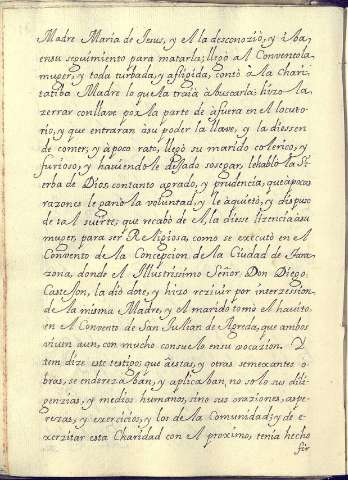 Madre Maria de Jesus, y Él la desconozió, y iba
en su seguimiento para matarla; llegò al Convento la
muger, y toda turbada, y afligida, contò à la Chari-
tatiba Madre lo que la traìa à buscarla: hizo la
zerrar con llave por la parte de àfuera en él locuto-
rio, y que entraran àsu poder la llave, y la diessen
de comer; y à poco rato, llegò su marido colerico, y
furioso, y haviendole dejado sosegar, le hablò la Si-
erba de Dios, con tanto agrado, y prudencia, que à pocas
razones le ganò la voluntad, y le àquietò; y dispuso
de tal suerte; que recabò de él, la diesse lizencia à su
muger, para ser Religiosa, como se executò en él
Convento de la Concepcion de la Ciudad de Tara-
zona, donde él Illustrissimo Señor Don Diego
Castejon, la diò dote, y hizo rezivir por interzession
de la misma Madre, y él marido tomò él havito
en él Convento de San Julian de Agreda, que ambos
viven aun, con mucho consuelo en su vocazion. Y
tem dize este testigo: que à estas, y otras semexantes o-
bras, se enderezaban, y aplicaban, no solo sus dili-
genzias, y medios humanos, sino sus oraziones, aspe-
rezas, y exercicios, y los de la Comunidad; y de e-
xerzitar esta Charidad con él proximo, tenia hecho
fir